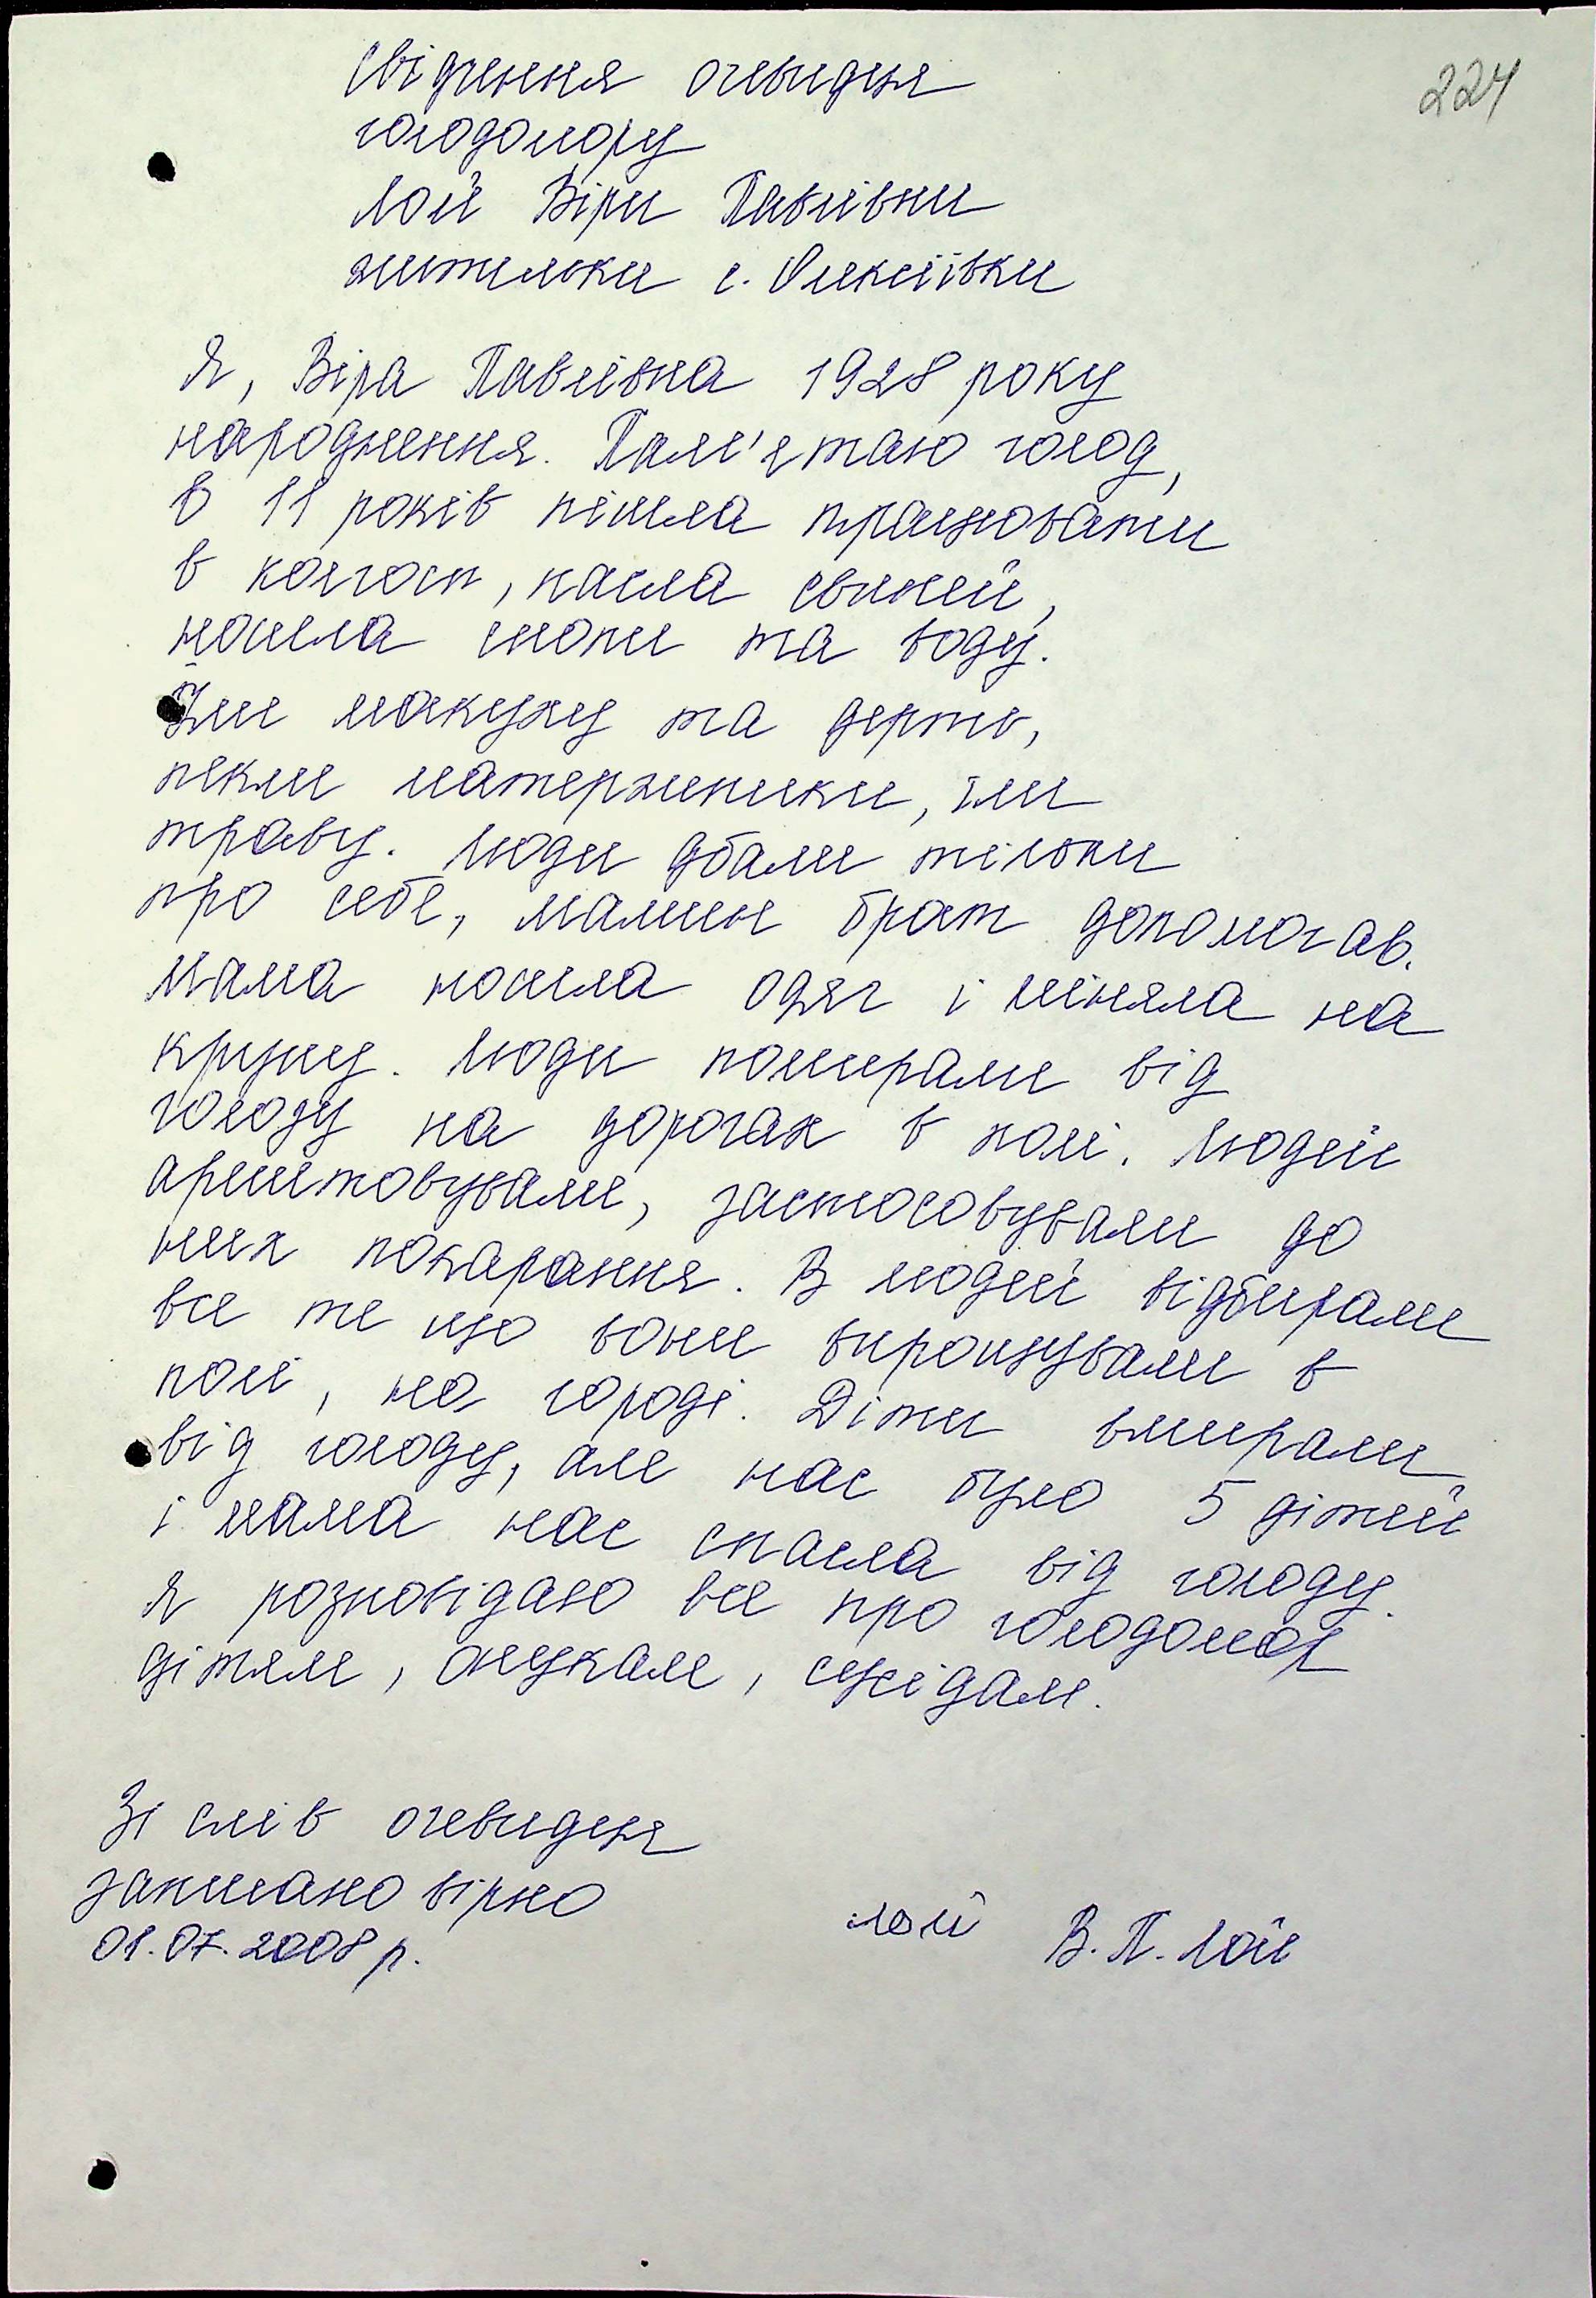 224
Свідчення очевидця
голодомору
Лой Віри Павлівни
жительки с. Олексіївки
Я, Віра Павлівна 1928 року
народження. Пам'ятаю голод,
В 11 років пішла працювати
в колгосп, пасла свиней,
носила снопи та воду.
Їли макуху та дерть,
пекли маторженики, їли
траву. Люди дбали тільки
про себе, мамин брат допомогав.
Мама носила одяг і міняла на
крупу. Люди помирали від
голоду на дорогах в полі. Людей
арештовували, застосовували до
них покарання. В людей відбирали
все те що вони вирощували в
полі, на городі. Діти вмирали
від голоду, але нас було 5 дітей
і мама нас спасла від голоду.
Я розповідаю все про голодомор
дітям, онукам, сусідам.
Зі слів очевидця
записано вірно
01.07.2008 р.
Лой В. П. Лой